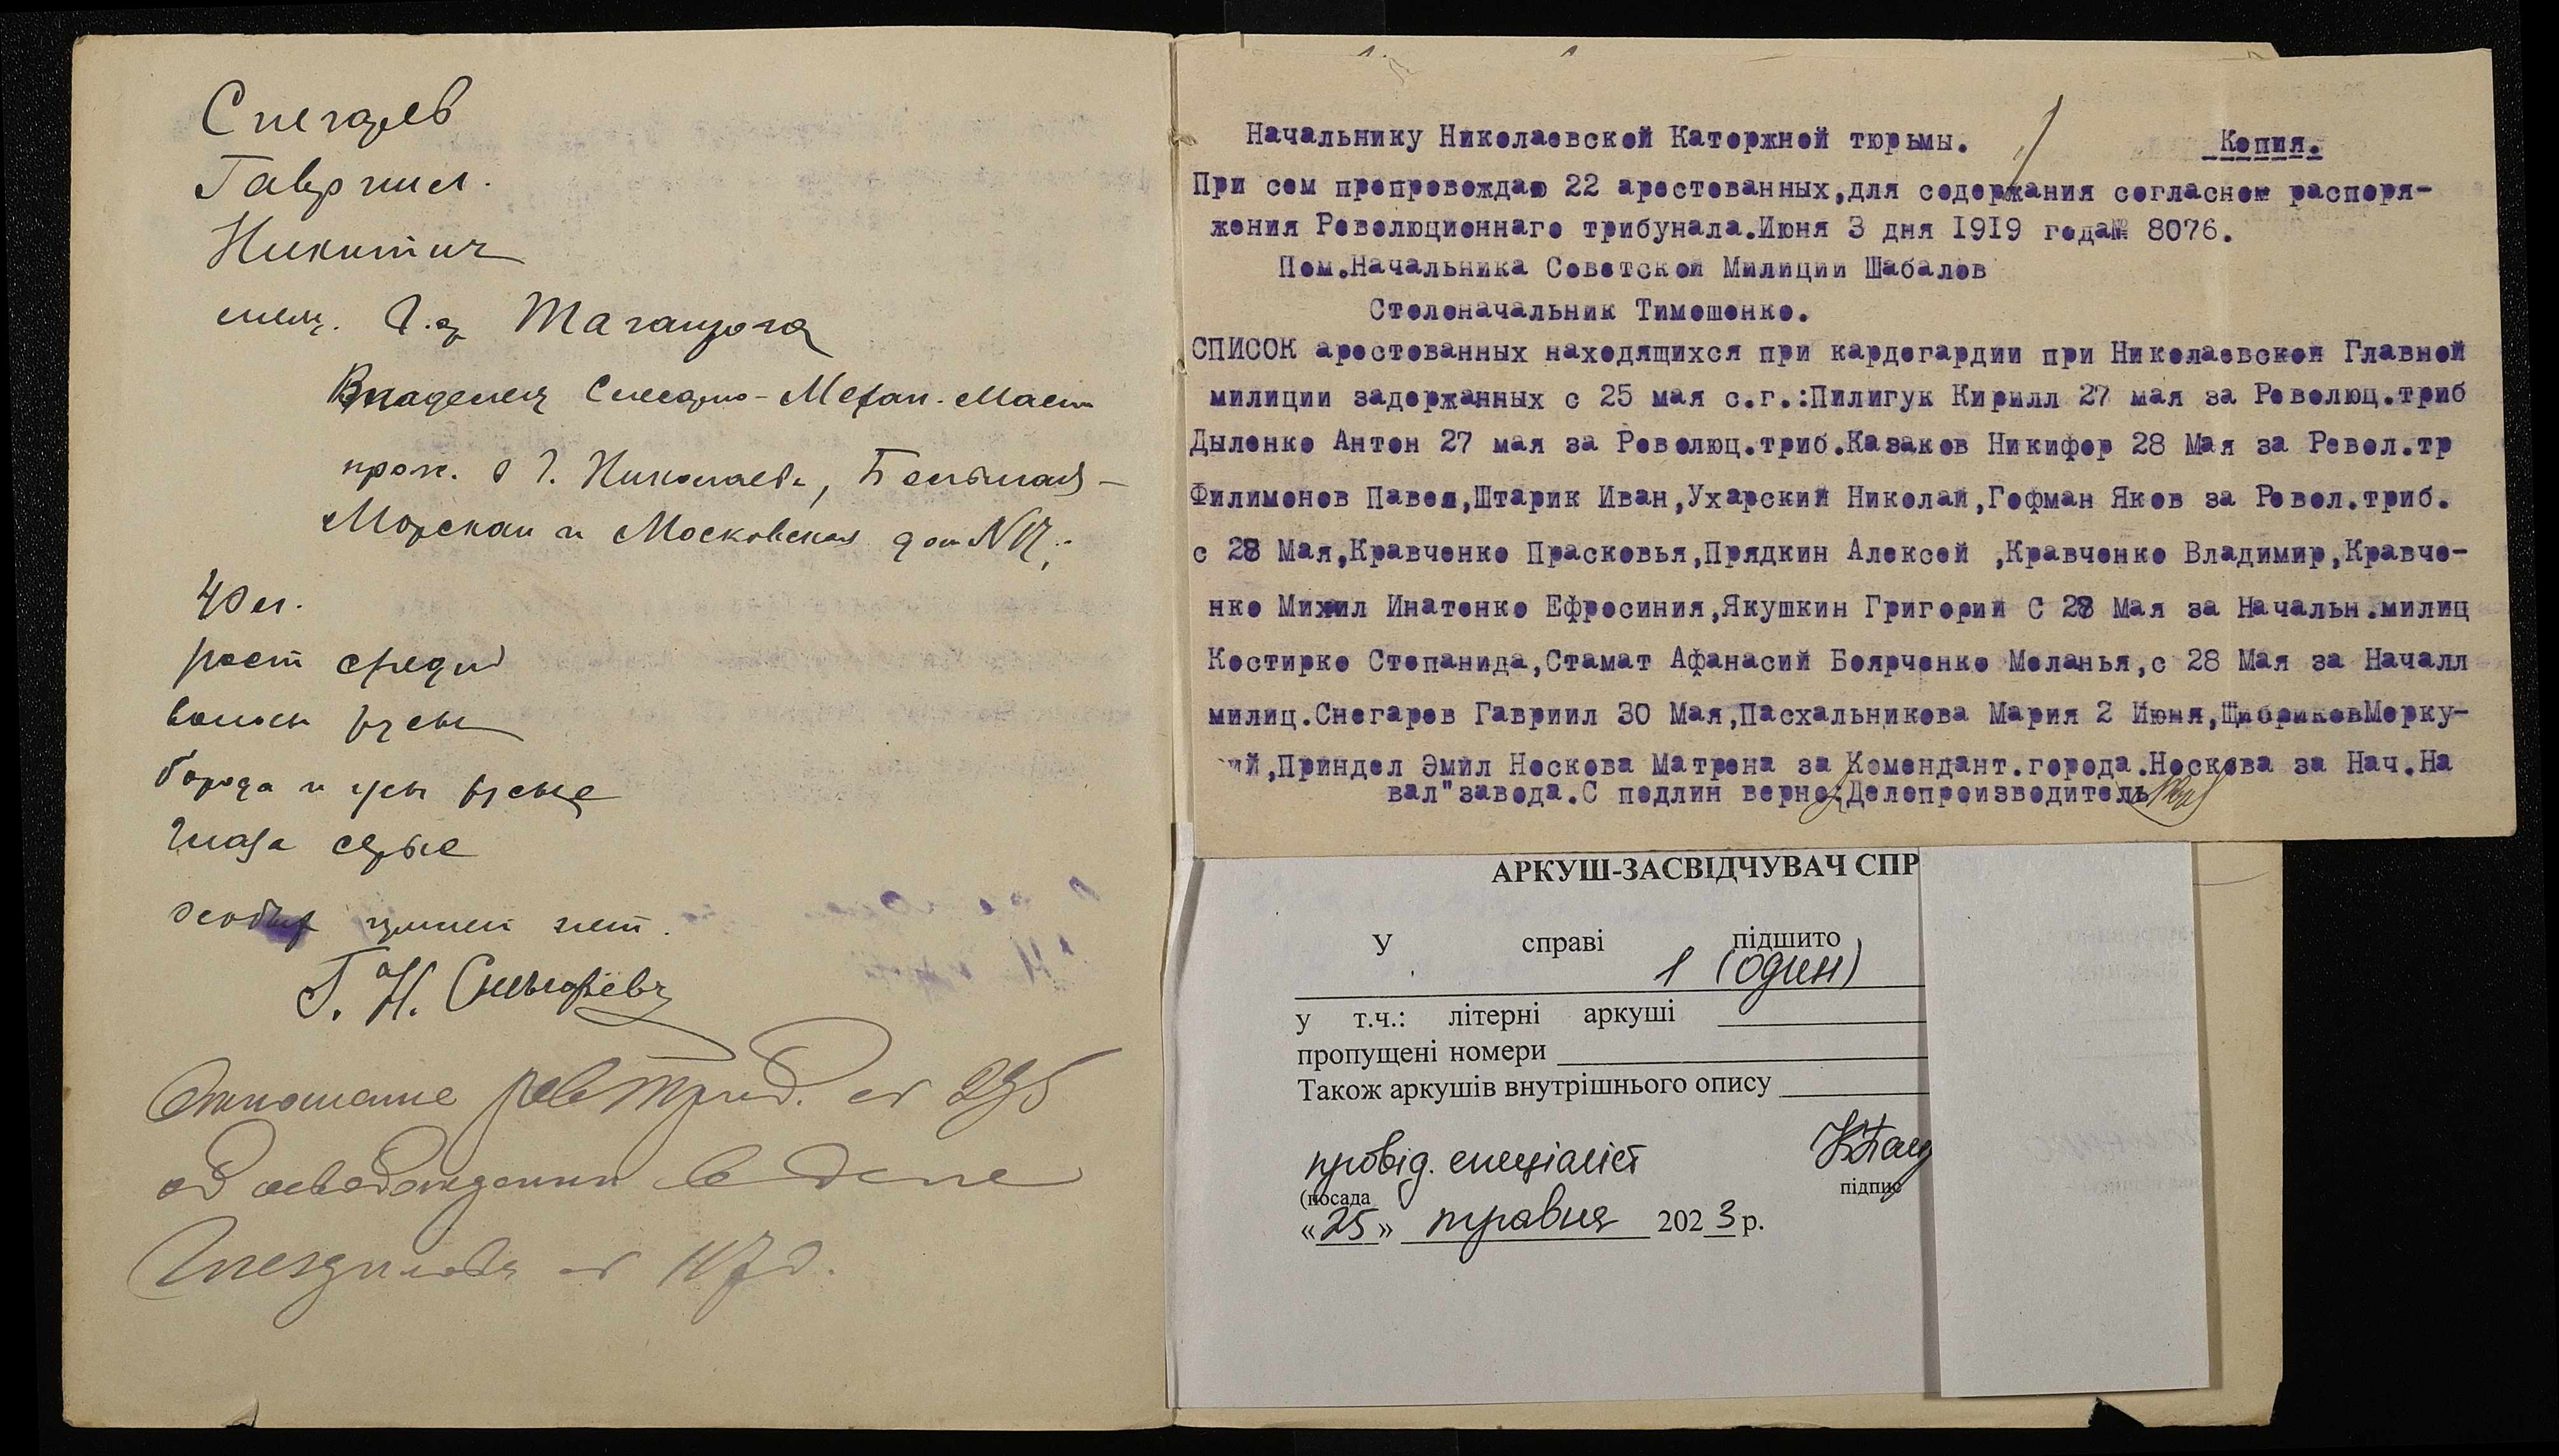 Снегарев
Гавриил.
Никитич
мещ. г.р Таганрога
Владелец Слесарно-Механ. Маст
прож. в г. Николаеве, Большая-
Морская и Московская дом №
40 л.
рост средн
волосы русы
борода и усы русые
Глаза серые
особых примет нет.
Г. Н. Снегаревъ
Отношение Рев Триб. от
об освобождении в деле
от
Начальнику Николаевской Каторжной тюрьмы.
Копия.
При сем препровождаю 22 арестованных,для содержания согласном распоря-
жения Революционнаго трибунала.Июня 3 дня 1919 года№ 8076.
Пом.Начальника Советской Милиции Шабалов
Столоначальник Тимошенко.
СПИСОК арестованных находящихся при кардегардии при Николаевской Главной
милиции задержанных с 25 мая с.г.:Пилигук Кирилл 27 мая за Революц.триб
Дыленко Антон 27 мая за Революц.триб.Казаков Никифор 28 Мая заРевол.тр
Филимонов Павел,Штарик Иван,Ухарский Николай,Гофман Яков за Револ.триб.
с 28 Мая,Кравченко Прасковья,Прядкин Алексей ,Кравченко Владимир,Кравче-
нко Михил Инатенко Ефросиния,Якушкин Григорий С 28 Мая за Начальн.милиц
Костирко Степанида,Стамат Афанасий Боярченко Меланья,с 28 Мая за Началл
милиц.Снегарев Гавриил 30 Мая,Пасхальникова Мария 2 Июня,ЩибриковМерку-
ий,Приндел Эмил Носкова Матрена за Комендант.города.Носкова за Нач.На
вал"завода.С подлин верно:Делопроизводитель
АРКУШ-ЗАСВІДЧУВАЧ СПР
У справі підшито
1 (один)
у т.ч.: літерні аркуші
пропущені номери
Також аркушів внутрішнього опису
провід. спеціаліст
(посада підпис
«25» травня 2023 р.